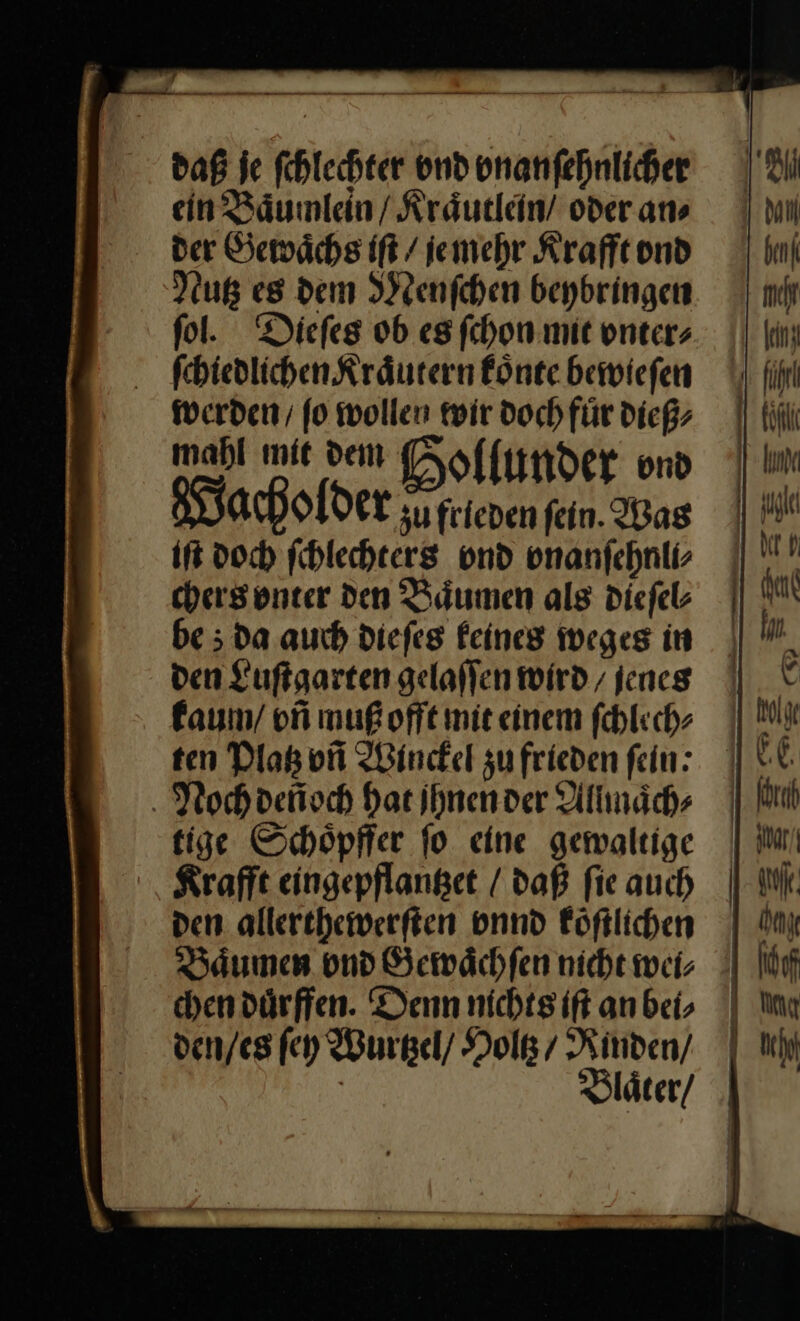 daß je ſchlechter vnd vnanſehnlicher
ein Baͤumlein / Kraͤutlein / oder an⸗
der Gewaͤchs iſt / je mehr Krafft vnd
Nutz es dem Menſchen beybringen
ſol. Dieſes ob es ſchon mit vnter⸗
ſchiedlichen Kraͤutern koͤnte bewieſen
werden / ſo wollen wir doch fuͤr dieß⸗
mahl mit dem Hollunder vnd
Wacholder zu frieden ſein. Was
iſt doch ſchlechters vnd vnanſehnli⸗
chers vnter den Baͤumen als dieſel⸗
be ; da auch dieſes keines weges in
den Luſtgarten gelaſſen wird / jenes
kaum / vñ muß offt mit einem ſchlech⸗
ten Platz vñ Winckel zu frieden ſein:
Noch deñoch hat jhnen der Allmaͤch⸗
tige Schoͤpffer ſo eine gewaltige
Krafft eingepflantzet / daß ſie auch
den allerthewerſten vnnd koͤſtlichen
Baͤumen vnd Gewaͤchſen nicht wei⸗
chen duͤrffen. Denn nichts iſt an bei⸗
den / es ſey Wurtzel / Holtz / Rinden /
Blaͤter /